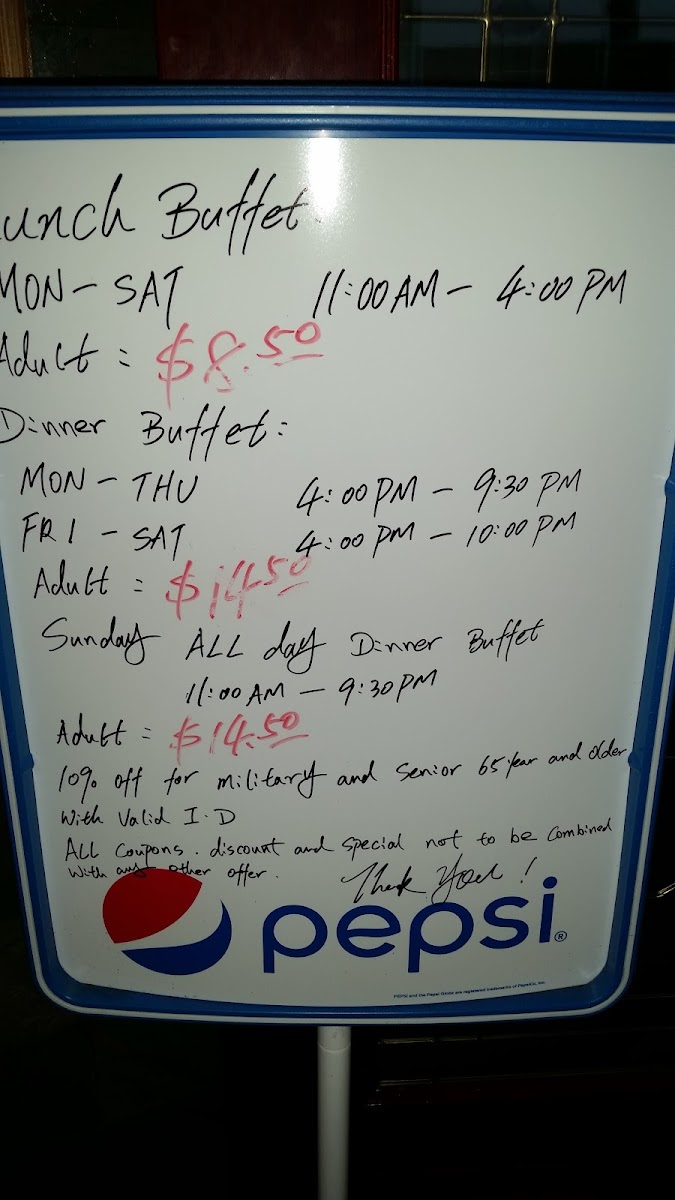 unch Buffet
MON - SAT 11:00 AM - 4:00 PM
Adult : $8.50
Dinner Buffet :
MON - THU 4:00 PM - 9:30 PM
FRI - SAT 4:00 PM - 10:00 PM
Adult : $14.50
Sunday ALL day Dinner Buffet
11:00 AM - 9:30 PM
Adult : $14.50
10% off for military and Senior 65 year and older
with Valid I.D
ALL Coupons. discount and special not to be Combined
with any other offer. Thank You !
pepsi®
PEPSI and the Pepsi Globe are registered trademarks of PepsiCo, Inc.